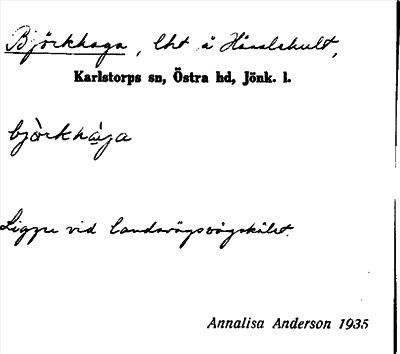 Björkhaga, lht å Håralshult,
Karlstorps sn, Östra hd, Jönk. l.
bjò̀rkhága
Ligger vid landsvägsvägskälet.
Annalisa Anderson 1935